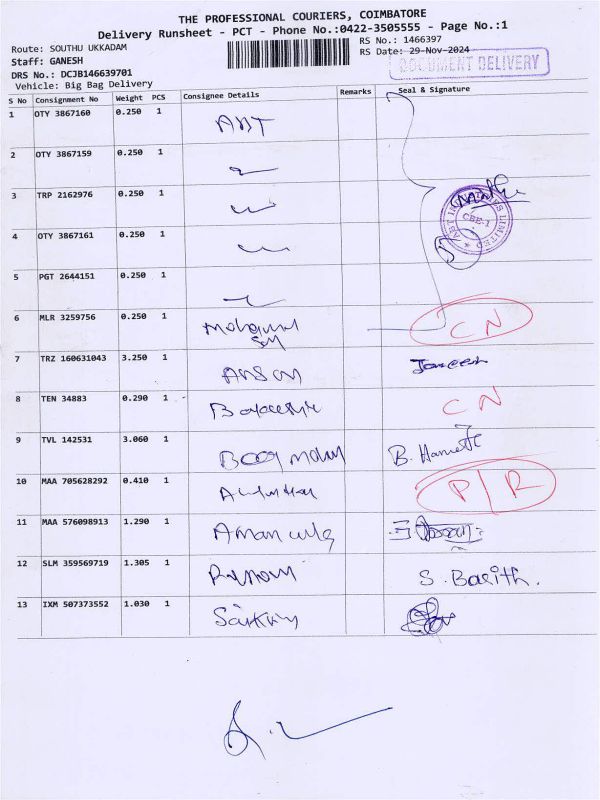 THE PROFESSIONAL COURIERS, COIMBATORE
Delivery Runsheet - PCT - Phone No.:0422-3505555 - Page No.:1
Route: SOUTHU UKKADAM
RS No.: 1466397
Staff: GANESH
RS Date: 29-Nov-2024
DOCUMENT DELIVERY
DRS No.: DCJB146639701
Vehicle: Big Bag Delivery
S No Consignment No Weight PCS Consignee Details Remarks Seal & Signature
1 OTY 3867160 0.250 1 ABT
2 OTY 3867159 0.250 1
3 TRP 2162976 0.250 1
4 OTY 3867161 0.250 1
ABT INDUSTRIES LIMITED
CBE-1
5 PGT 2644151 0.250 1
6 MLR 3259756 0.250 1 CN
7 TRZ 160631043 3.250 1
8 TEN 34883 0.290 1 CN
9 TVL 142531 3.060 1 B.
10 MAA 705628292 0.410 1 P/R
11 MAA 576098913 1.290 1
12 SLM 359569719 1.305 1 S. Basith.
13 IXM 507373552 1.030 1